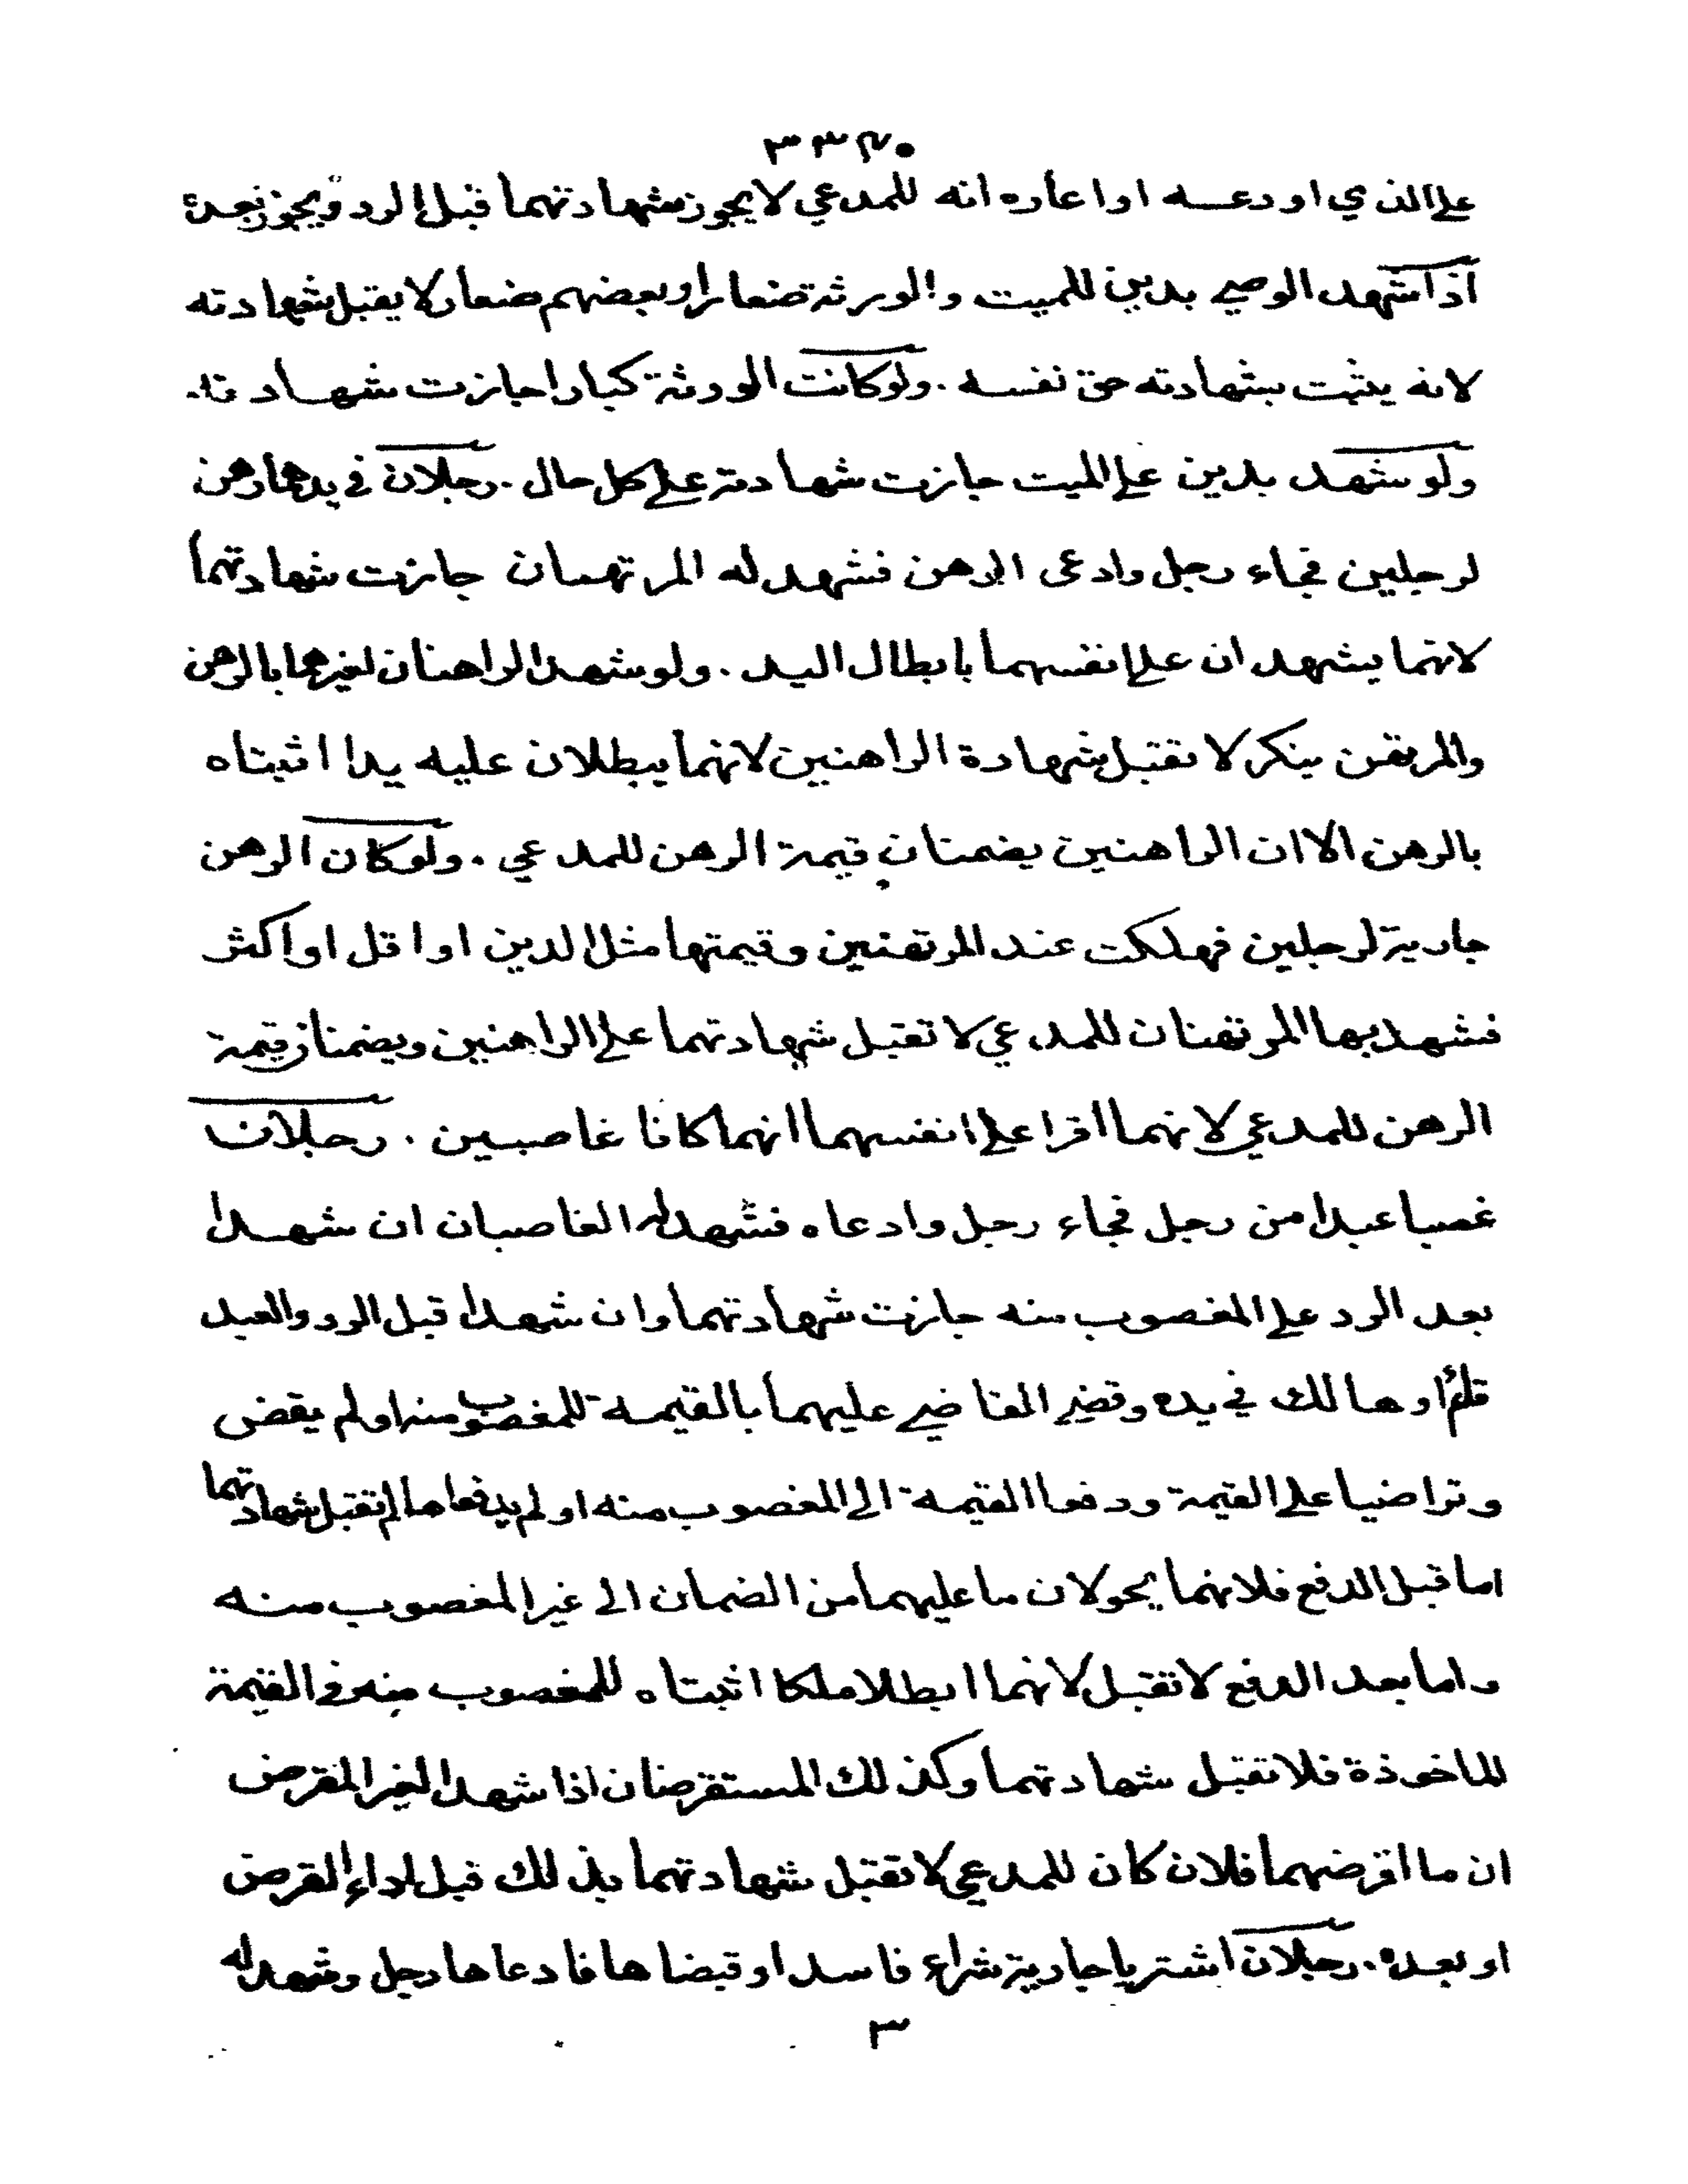 على الذي اودعه اواعاره انه للمدعي لا يجوز شهادتهما قبل الرد ويجوز بعده
اذا شهد الوصي بدين للميت والورثة ضعار اوبعضهم ضعار لا يقبل شهادته
لانه يثبت بشهادته حق نفسه . ولوكانت الورثة كبارا جازت شهادته
ولو شهد بدين على الميت جازت شهادته على كل حال . رجلان في يدهما رهن
لرجلين فجاء رجل وادعى الرهن فشهد له المرتهنان جازت شهادتهما
لانهما يشهدان على انفسهما بابطال اليد . ولو شهد الراهنان لغيرهما بالرهن
والمرتهن ينكر لا تقبل شهادة الراهنين لانهما يبطلان عليه يدا اثبتاه
بالرهن الا ان الراهنين يضمنان قيمة الرهن للمدعي . ولو كان الرهن
جارية لرجلين فهلكت عند المرتهنين وقيمتها مثل الدين او اقل او اكثر
فشهد بها المرتهنان للمدعي لا تقبل شهادتهما على الراهنين ويضمنان قيمة
الرهن للمدعي لانهما اقرا على انفسهما انهما كانا غاصبين . رجلان
غصبا عبدا من رجل فجاء رجل وادعاه فشهد له الغاصبان ان شهدا
بعد الرد على المغصوب منه جازت شهادتهما وان شهدا قبل الرد والعبد
قائم او هالك في يده وقضى القاضي عليهما بالقيمة للمغصوب منه او لم يقض
وتراضيا على القيمة ودفعا القيمة الى المغصوب منه او لم يدفعاها لم تقبل شهادتهما
اما قبل الدفع فلانهما يحولان ما عليهما من الضمان الى غير المغصوب منه
واما بعد الدفع لا تقبل لانهما ابطلا ملكا اثبتاه للمغصوب منه في القيمة
الماخوذة فلا تقبل شهادتهما وكذلك المستقرضان اذا شهدا لغير المقرض
ان ما اقرضهما فلان كان للمدعي لا تقبل شهادتهما بذلك قبل اداء القرض
او بعده . رجلان اشتريا جارية شراء فاسدا وقبضاها فادعاها رجل وشهد له
٣